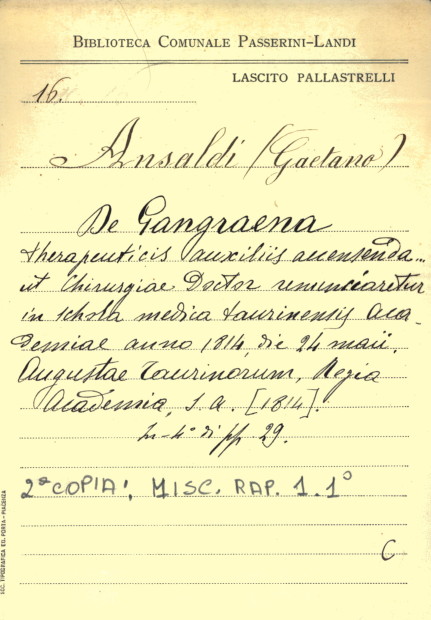 BIBLIOTECA COMUNALE PASSERINI-LANDI
LASCITO PALLASTRELLI
16.
Ansaldi (Gaetano)
De Gangraena
therapeuticis auxiliis accensenda...
ut Chirurgiae Doctor renunciaretur
in schola medica taurinensis Aca-
demiae anno 1814, die 24 maii.
Augustae Taurinorum, Regia
Academia, s. a. [1814].
In-4° di pp. 29.
2ª COPIA: MISC. RAP. 1. 1°
C
SOC. TIPOGRAFICA ED. PORTA - PIACENZA